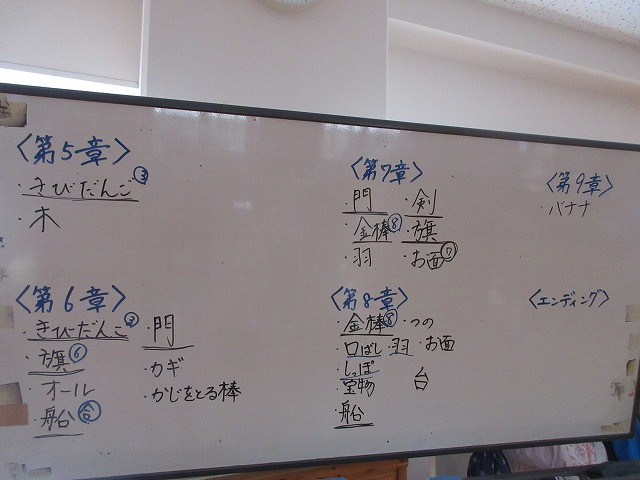 〈第5章〉
・きびだんご③
・木
〈第6章〉
・きびだんご②
・旗⑥
・オール
・船㊁
・門
・カギ
・かじをとる棒
〈第7章〉
・門 ・剣
・金棒⑧ ・旗
・羽 ・お面⑦
〈第8章〉
・金棒⑧ ・つの
・口ばし ・羽 ・お面
・しっぽ
宝物 台
・船
〈第9章〉
・バナナ
〈エンディング〉